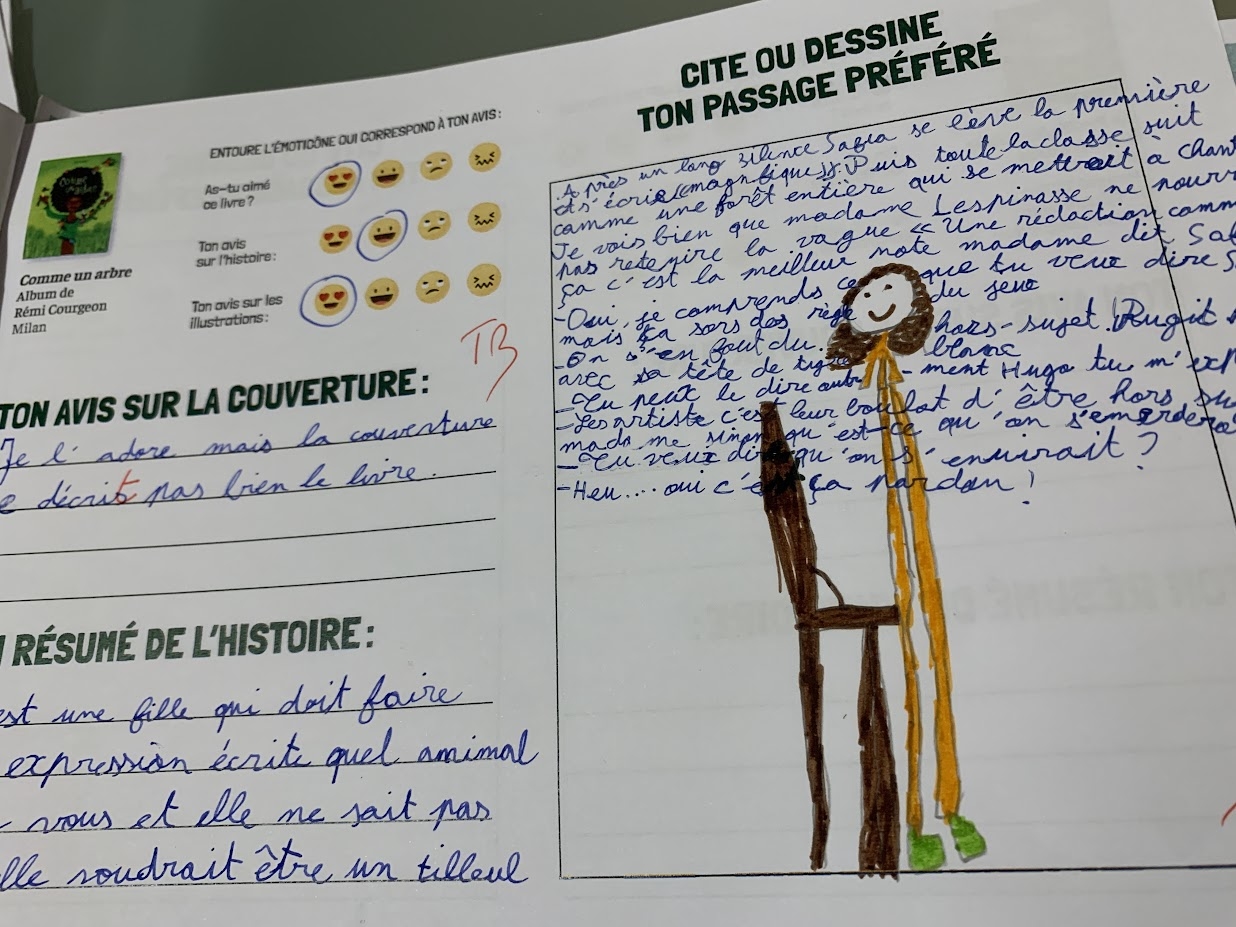 ENTOURE L'ÉMOTICÔNE QUI CORRESPOND À TON AVIS :
As-tu aimé
ce livre ?
Ton avis
sur l'histoire :
Ton avis sur les
illustrations :
Comme un arbre
Album de
Rémi Courgeon
Milan
TB
TON AVIS SUR LA COUVERTURE :
Je l'adore mais la couverture
e décrit pas bien le livre.
RÉSUMÉ DE L'HISTOIRE :
est une fille qui doit faire
expression écrite quel animal
vous et elle ne sait pas
elle voudrait être un tilleul
CITE OU DESSINE
TON PASSAGE PRÉFÉRÉ
Après un long silence Safia se lève la première
et s'écrie « magnifique ». Puis toute la classe suit
comme une forêt entière qui se mettrait à chant
Je vois bien que madame Lespinasse ne pourr
pas retenire la vague « Une rédaction comm
ça c'est la meilleur note madame dit Saf
- Oui, je comprends ce que tu veux dire S
mais ça sors des règle du jeux
- On s'en fout du hors-sujet ! Rugit
avec sa tête de tigre blanc
- Tu peux le dire autre - ment Hugo tu m'exp
- Les artiste c'est leur boulot d'être hors su
madame sinon qu'est-ce qu'on s'emerdera
- Tu veux dire qu'on s'ennuirait ?
- Heu.... oui c'est ça pardon !